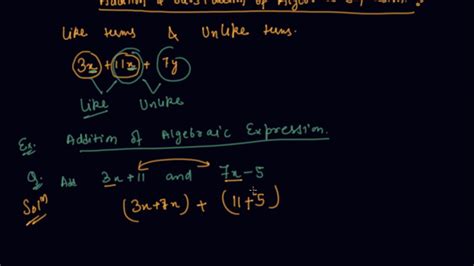 Addition & Subtraction of Algebraic Expression :
Like terms & Unlike terms.
3x + 11x + 7y
Like Unlike
Ex. Addition of Algebraic Expression.
Q. Add 3x + 11 and 7x - 5
Solⁿ) (3x+7x) + (11 + 5)